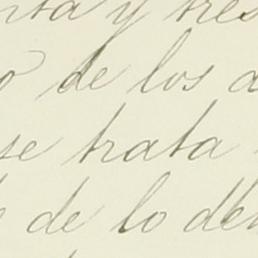 nta y tres
o de los a
se trata
de lo deb